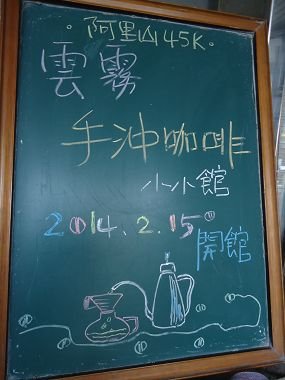 ·阿里山45K·
雲霧
手沖咖啡
小小館
2014.2.15
開館